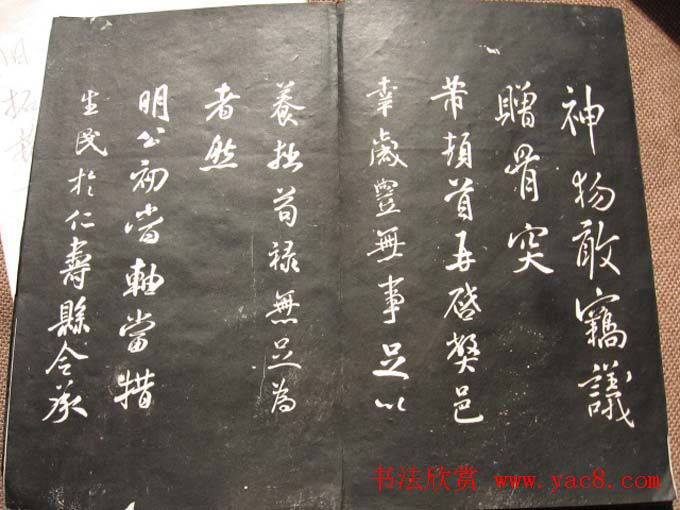 神物敢竊議
贈骨突
芾頓首再啓弊邑
幸歲豐無事足以
養拙苟禄無足為
者然
明公初當軸當措
生民於仁壽縣令承
旧拓
书法欣赏 www.yac8.com